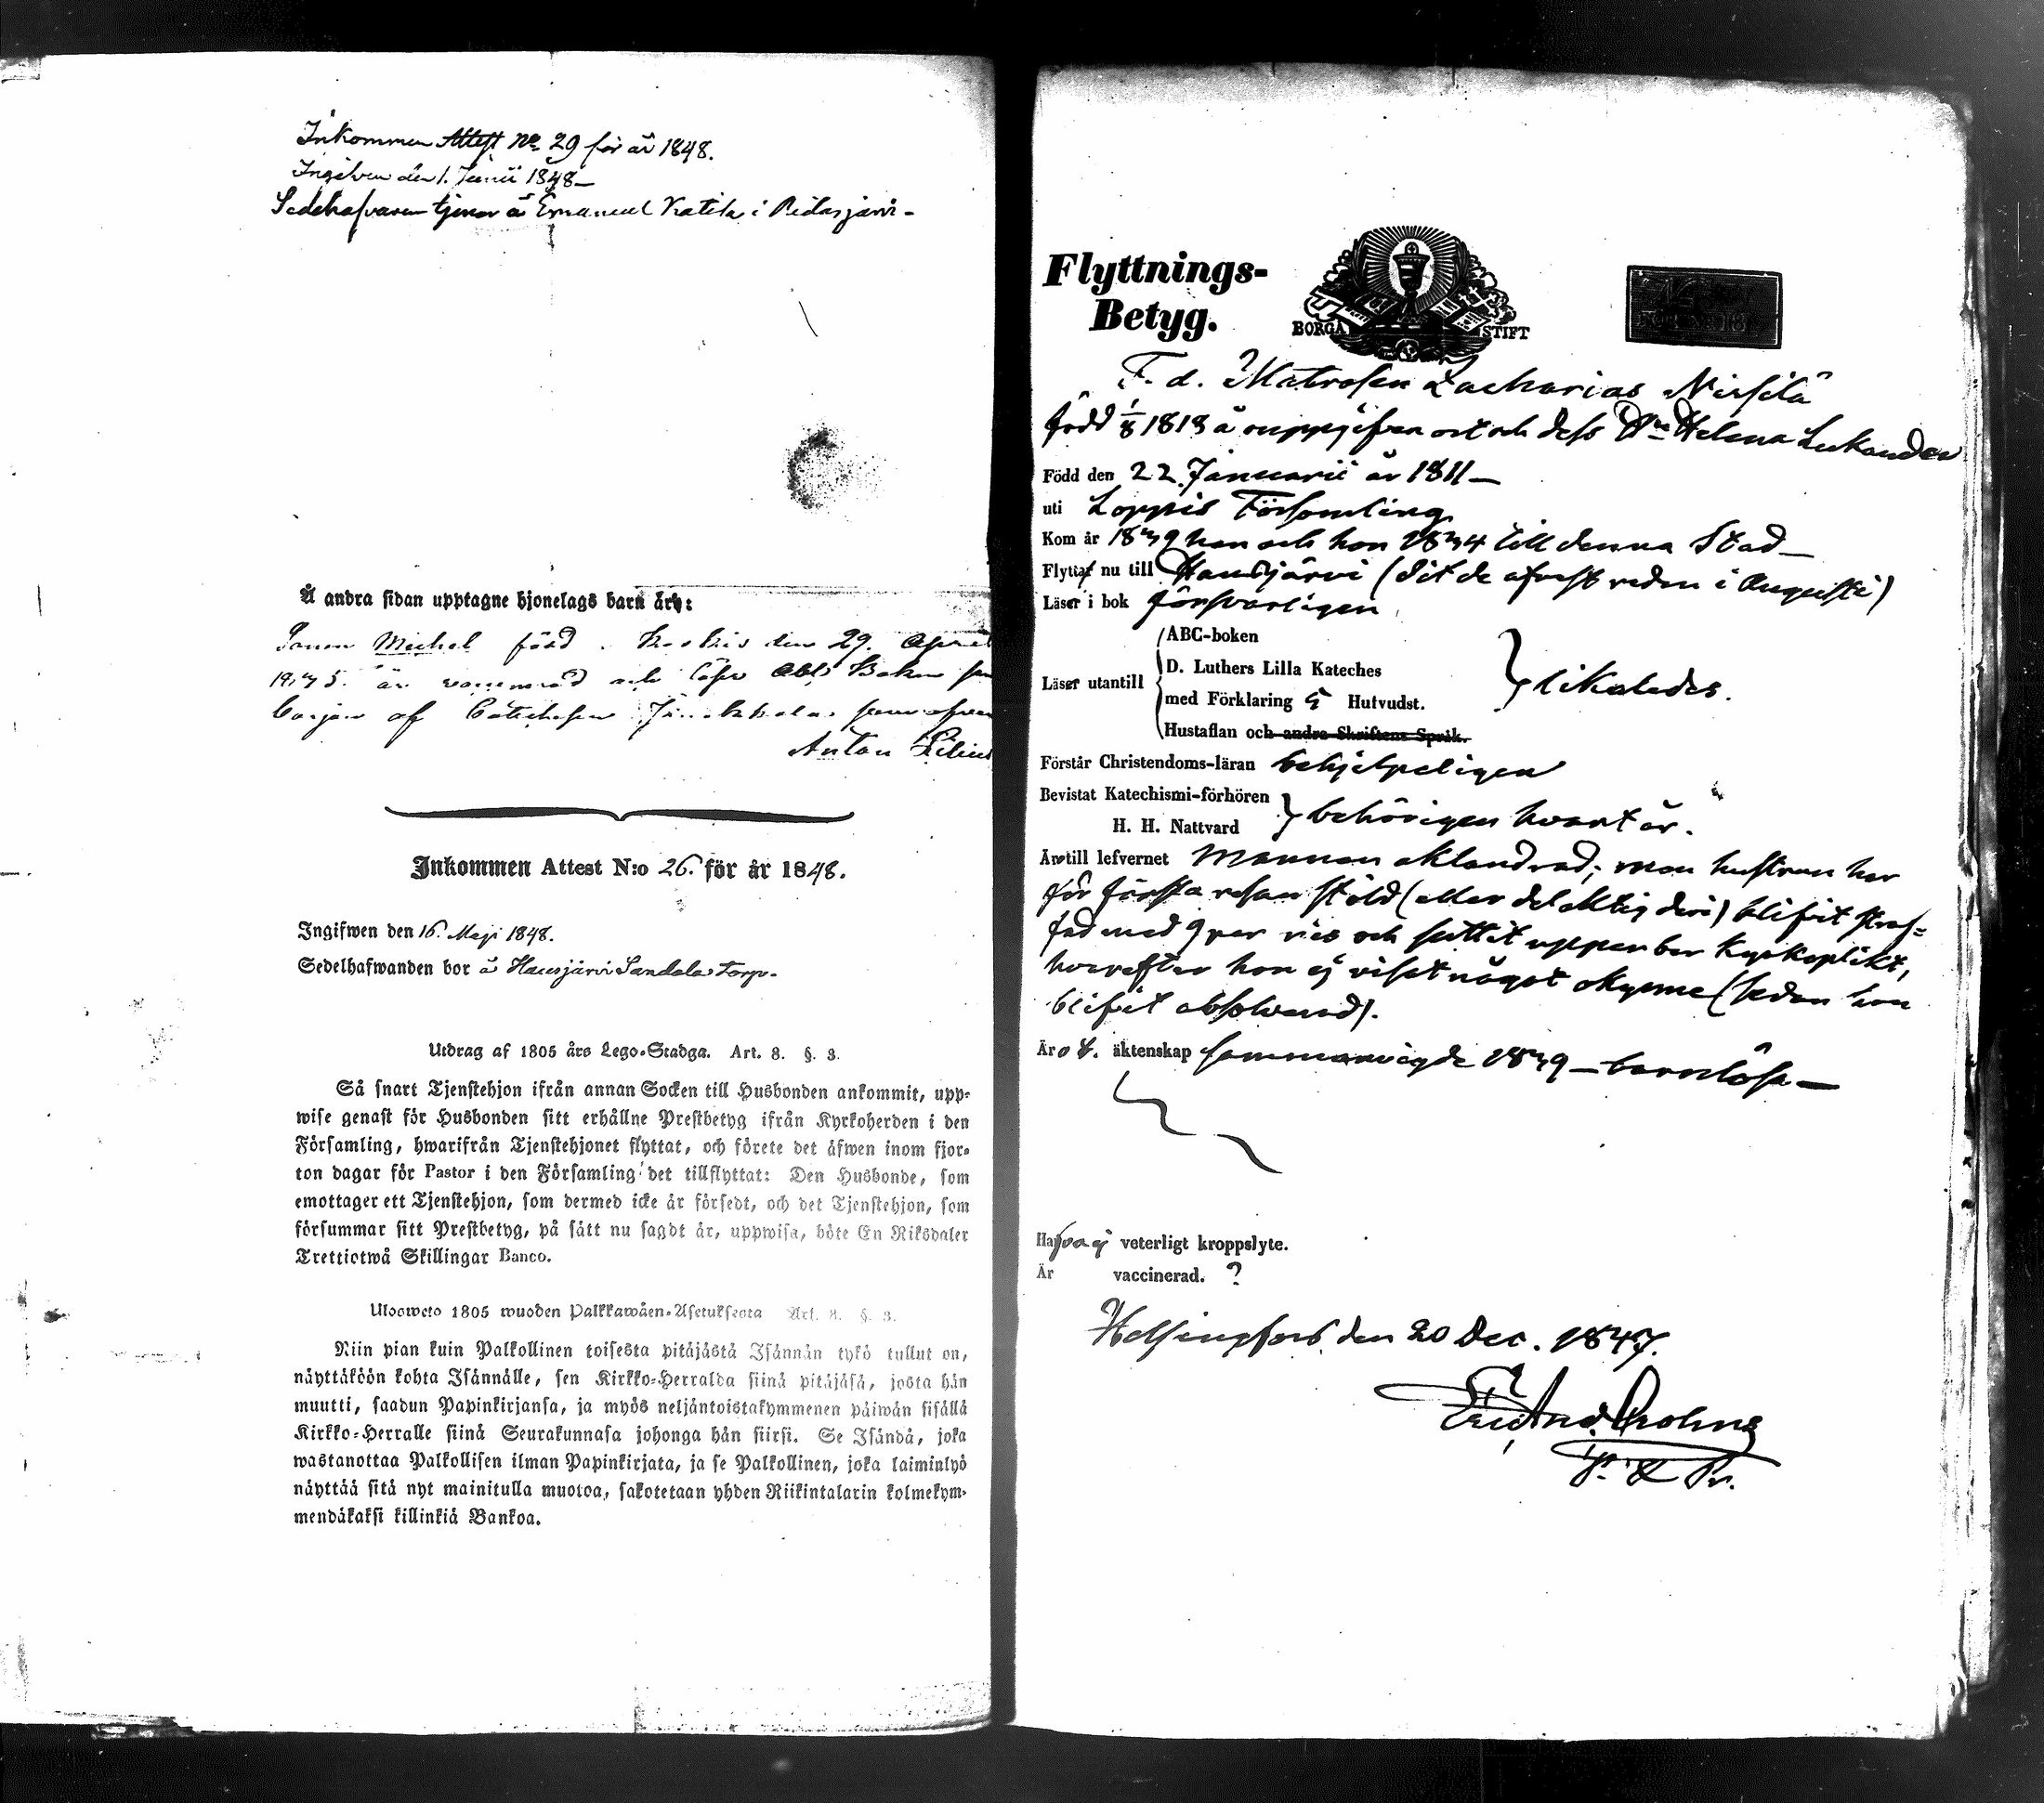 Inkommen Attest No 29 för år 1848.
Ingifven den 1. Junii 1848 –
Sedelhafvaren tjenar å Emanuel Katila i Ridasjärvi –
Å andra sidan upptagne hjonelags barn äro:
Sonen Michel född i Koskis den 29. April
1835. är vaccinerad och läser Abc Boken
början af Catechesen
Anton Lilius
Inkommen Attest N:o 26. för år 1848.
Ingifwen den 16. Maji 1848.
Sedelhafwanden bor å Hausjärvi Sandala Torp.
Utdrag af 1805 års Lego-Stadga. Art. 8. §. 3.
Så snart Tjenstehjon ifrån annan Socken till Husbonden ankommit, upp-
wise genast för Husbonden sitt erhållne Prestbetyg ifrån Kyrkoherden i den
Församling, hwarifrån Tjenstehjonet flyttat, och förete det äfwen inom fjor-
ton dagar för Pastor i den Församling det tillflyttat: Den Husbonde, som
emottager ett Tjenstehjon, som dermed icke är försedt, och det Tjenstehjon, som
försummar sitt Prestbetyg, på sätt nu sagdt är, uppwisa, böte En Riksdaler
Trettiotwå Skillingar Banco.
Ulosweto 1805 wuoden Palkkawäen-Asetuksesta Art. 8. §. 3.
Niin pian kuin Palkollinen toisesta pitäjästä Isännän tykö tullut on,
näyttäköön kohta Isännälle, sen Kirkko-Herralda siinä pitäjäsä, josta hän
muutti, saadun Papinkirjansa, ja myös neljäntoistakymmenen päiwän sisällä
Kirkko-Herralle siinä Seurakunnasa johonga hän siirsi. Se Isändä, joka
wastanottaa Palkollisen ilman Papinkirjata, ja se Palkollinen, joka laiminlyö
näyttää sitä nyt mainitulla muotoa, sakotetaan yhden Riikintalarin kolmekym-
mendäkaksi killinkiä Bankoa.
Flyttnings-
Betyg.
BORGÅ STIFT
F. d. Matrosen Zacharias Nirsilä
född 1/8 1813 å ouppgifven ort och dess Hu Helena Lukander
Född den 22 Januarii år 1811 –
uti Loppis Församling
Kom år 1839 han och hon 1834 till denna Stad –
Flytta nu till Hausjärvi (dit de afrest redan i Augusti)
Läser i bok försvarligen
ABC-boken
D. Luthers Lilla Kateches
Läser utantill med Förklaring 5 Hufvudst. likaledes.
Hustaflan och andra Skriftens Språk.
Förstår Christendoms-läran behjelpeligen
Bevistat Katechismi-förhören
H. H. Nattvard behörigen hvart år.
Är till lefvernet mannen oklandrad; men hustrun har
för första resan stöld (eller delaktig deri) blifvit straf-
fad med 9 par ris och suttit uppenbar Kyrkoplikt,
hvarefter hon ej visat något okynne (sedan hon
blifvit absolverad).
Är o t. äktenskap sammanvigde 1839 – barnlösa –
Hafva ej veterligt kroppslyte.
Är vaccinerad. ?
Helsingfors, den 20 Dec. 1847.